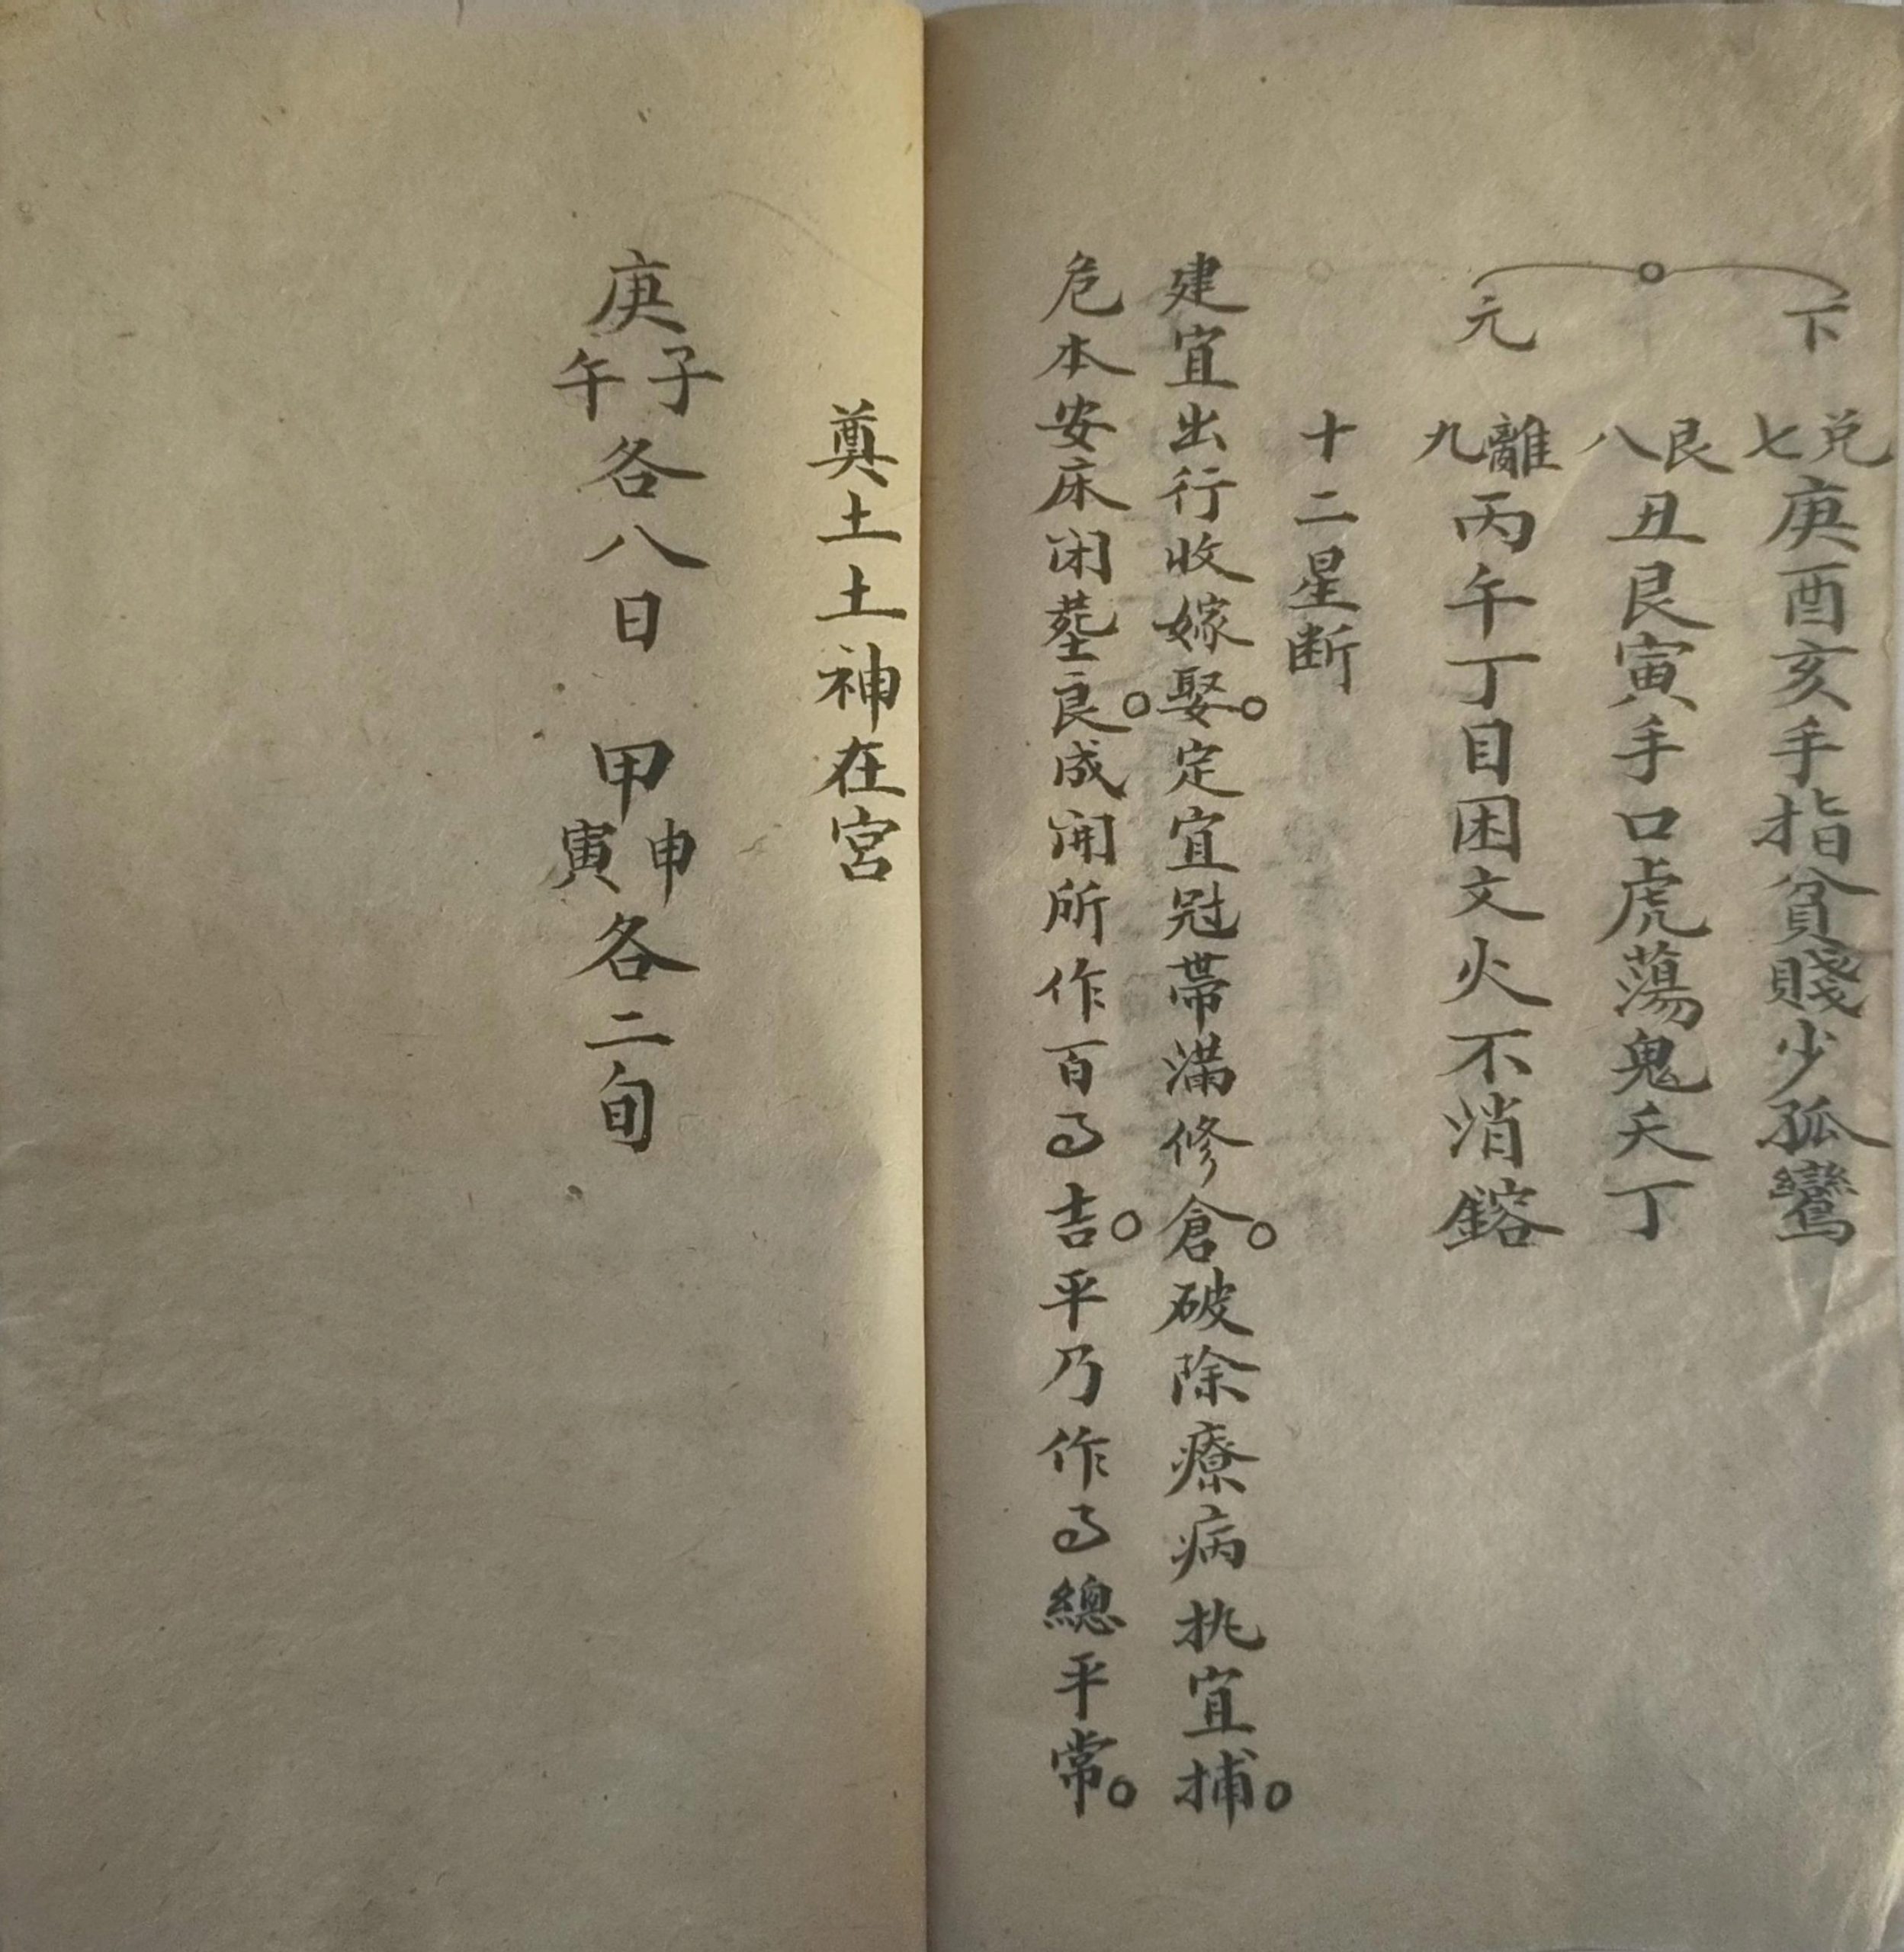 下
兑七庚酉亥手指貧賤少孤鸞
艮八丑艮寅手口虎蕩鬼夭丁
元
離九丙午丁目困文火不消鎔
十二星断
建宜出行收嫁娶。定宜冠帯滿修倉。破除療病执宜捕。
危本安床闭塟良。成開所作百事吉。平乃作事總平常。
奠土土神在宮
庚子午各八日 甲申寅各二旬